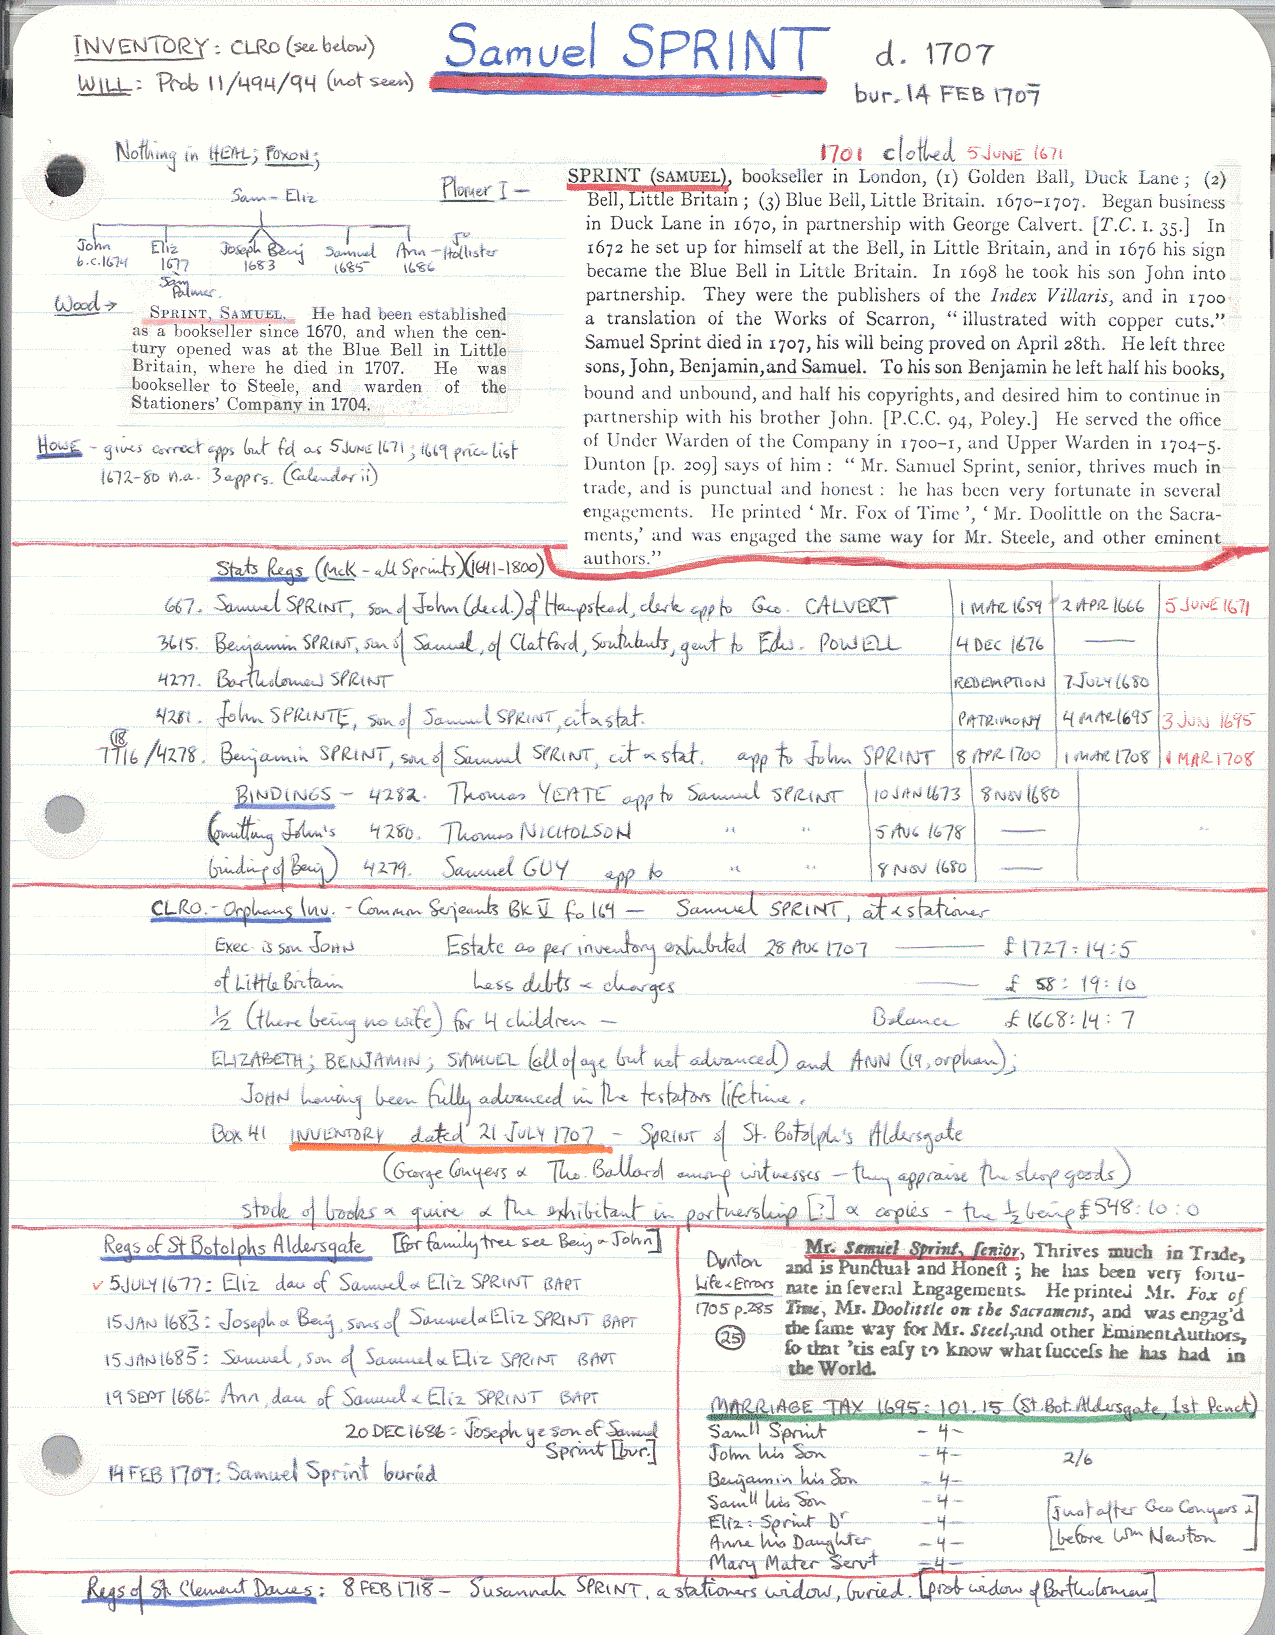 INVENTORY: CLRO (see below)
WILL: Prob 11/494/94 (not seen)
Samuel SPRINT
d. 1707
bur. 14 FEB 1707
Nothing in HEAL; FOXON;
Sam - Eliz
John b.c.1674
Eliz 1677
Joseph Benj 1683
Samuel 1685
Ann - Jn Hollister 1686
Sam Palmer.
Plomer I —
1701 clothed 5 JUNE 1671
SPRINT (SAMUEL), bookseller in London, (1) Golden Ball, Duck Lane; (2)
Bell, Little Britain; (3) Blue Bell, Little Britain. 1670-1707. Began business
in Duck Lane in 1670, in partnership with George Calvert. [T.C. I. 35.] In
1672 he set up for himself at the Bell, in Little Britain, and in 1676 his sign
became the Blue Bell in Little Britain. In 1698 he took his son John into
partnership. They were the publishers of the Index Villaris, and in 1700
a translation of the Works of Scarron, "illustrated with copper cuts."
Samuel Sprint died in 1707, his will being proved on April 28th. He left three
sons, John, Benjamin, and Samuel. To his son Benjamin he left half his books,
bound and unbound, and half his copyrights, and desired him to continue in
partnership with his brother John. [P.C.C. 94, Poley.] He served the office
of Under Warden of the Company in 1700-1, and Upper Warden in 1704-5.
Dunton [p. 209] says of him: "Mr. Samuel Sprint, senior, thrives much in
trade, and is punctual and honest: he has been very fortunate in several
engagements. He printed 'Mr. Fox of Time', 'Mr. Doolittle on the Sacra-
ments,' and was engaged the same way for Mr. Steele, and other eminent
authors."
Wood →
SPRINT, SAMUEL. He had been established
as a bookseller since 1670, and when the cen-
tury opened was at the Blue Bell in Little
Britain, where he died in 1707. He was
bookseller to Steele, and warden of the
Stationers' Company in 1704.
HOWE - gives correct apps but fd as 5 JUNE 1671; 1669 price list
1672-80 n.a. 3 apprs. (Calendar ii)
Stats Regs (McK - all Sprints) (1641-1800)
667. Samuel SPRINT, son of John (decd.) of Hampstead, clerk app to Geo. CALVERT 1 MAR 1659 2 APR 1666 5 JUNE 1671
3615. Benjamin SPRINT, son of Samuel, of Clatford, Southants, gent to Edw. POWELL 4 DEC 1676 —
4277. Bartholomew SPRINT REDEMPTION 7 JULY 1680
4281. John SPRINTE, son of Samuel SPRINT, cit & stat. PATRIMONY 4 MAR 1695 3 JUN 1695
(18) 7716/4278. Benjamin SPRINT, son of Samuel SPRINT, cit & stat. app to John SPRINT 8 APR 1700 1 MAR 1708 1 MAR 1708
BINDINGS - 4282. Thomas YEATE app to Samuel SPRINT 10 JAN 1673 8 NOV 1680
(omitting John's 4280. Thomas NICHOLSON " " 5 AUG 1678 —
binding of Benj) 4279. Samuel GUY app to " " 8 NOV 1680 —
CLRO. - Orphans Inv. - Common Serjeants BK V fo 164 — Samuel SPRINT, cit & stationer
Exec. is son JOHN Estate as per inventory exhibited 28 AUG 1707 — £1727:14:5
of Little Britain Less debts & charges — £ 58:19:10
½ (there being no wife) for 4 children — Balance £1668:14:7
ELIZABETH; BENJAMIN; SAMUEL (all of age but not advanced) and ANN (19, orphan);
JOHN having been fully advanced in the testators lifetime.
Box 41 INVENTORY dated 21 JULY 1707 - SPRINT of St. Botolph's Aldersgate
(George Conyers & Tho. Ballard among witnesses - they appraise the shop goods)
stock of books a quire & the exhibitant in partnership [?] & copies - the ½ being £548:10:0
Regs of St Botolphs Aldersgate [for family tree see Benj & John]
✓ 5 JULY 1677: Eliz dau of Samuel & Eliz SPRINT BAPT
15 JAN 1683: Joseph & Benj, sons of Samuel & Eliz SPRINT BAPT
15 JAN 1685: Samuel, son of Samuel & Eliz SPRINT BAPT
19 SEPT 1686: Ann, dau of Samuel & Eliz SPRINT BAPT
20 DEC 1686: Joseph ye son of Samuel
Sprint [bur.]
14 FEB 1707: Samuel Sprint buried
Dunton
Life & Errors
1705 p.285
(25)
Mr. Samuel Sprint, ſenior, Thrives much in Trade,
and is Punctual and Honeſt; he has been very fortu-
nate in ſeveral Engagements. He printed Mr. Fox of
Time, Mr. Doolittle on the Sacrament, and was engag'd
the ſame way for Mr. Steel, and other Eminent Authors,
ſo that 'tis eaſy to know what ſucceſs he has had in
the World.
MARRIAGE TAX 1695: 101.15 (St. Bot. Aldersgate, 1st Penct)
Samll Sprint - 4 -
John his Son - 4 - 2/6
Benjamin his Son - 4 -
Samll his Son - 4 -
Eliz: Sprint Dr - 4 -
Anne his Daughter - 4 -
Mary Mater Servt - 4 -
[just after Geo Conyers &
before Wm Newton]
Regs of St Clement Danes: 8 FEB 1718 - Susannah SPRINT, a stationers widow, buried. [prob widow of Bartholomew]